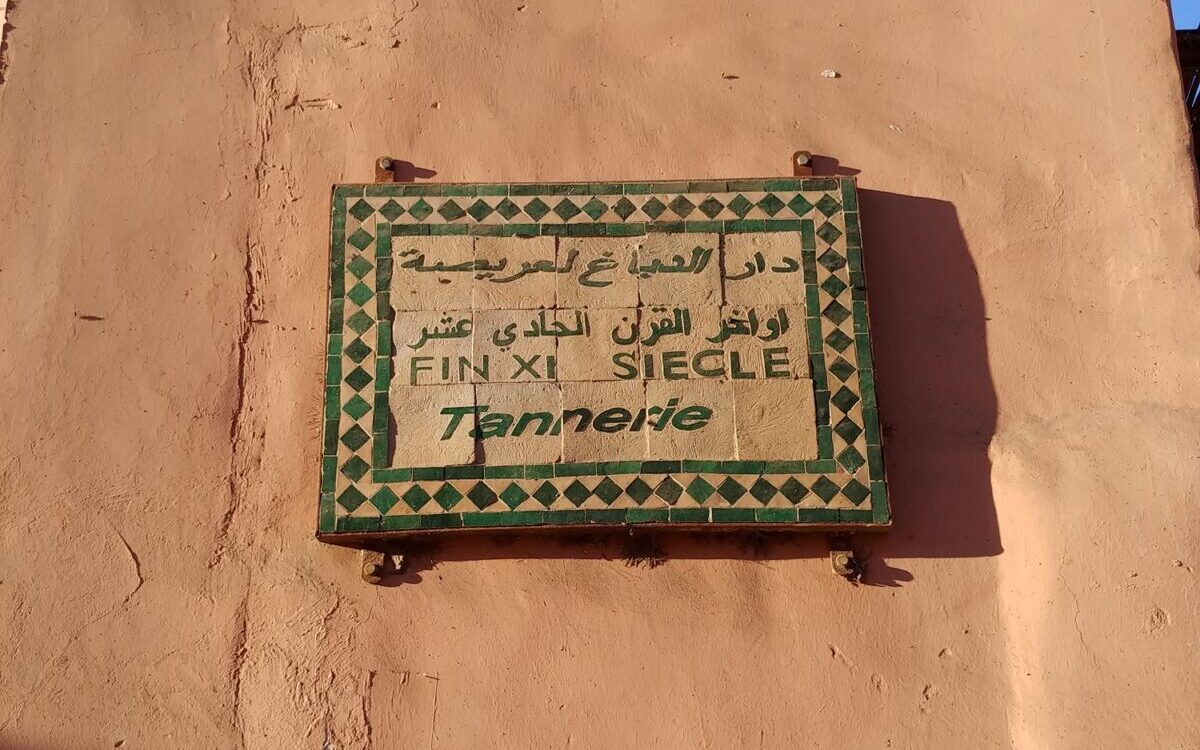 دار الدباغ لعريصة
اواخر القرن الحادي عشر
FIN XI SIECLE
Tannerie